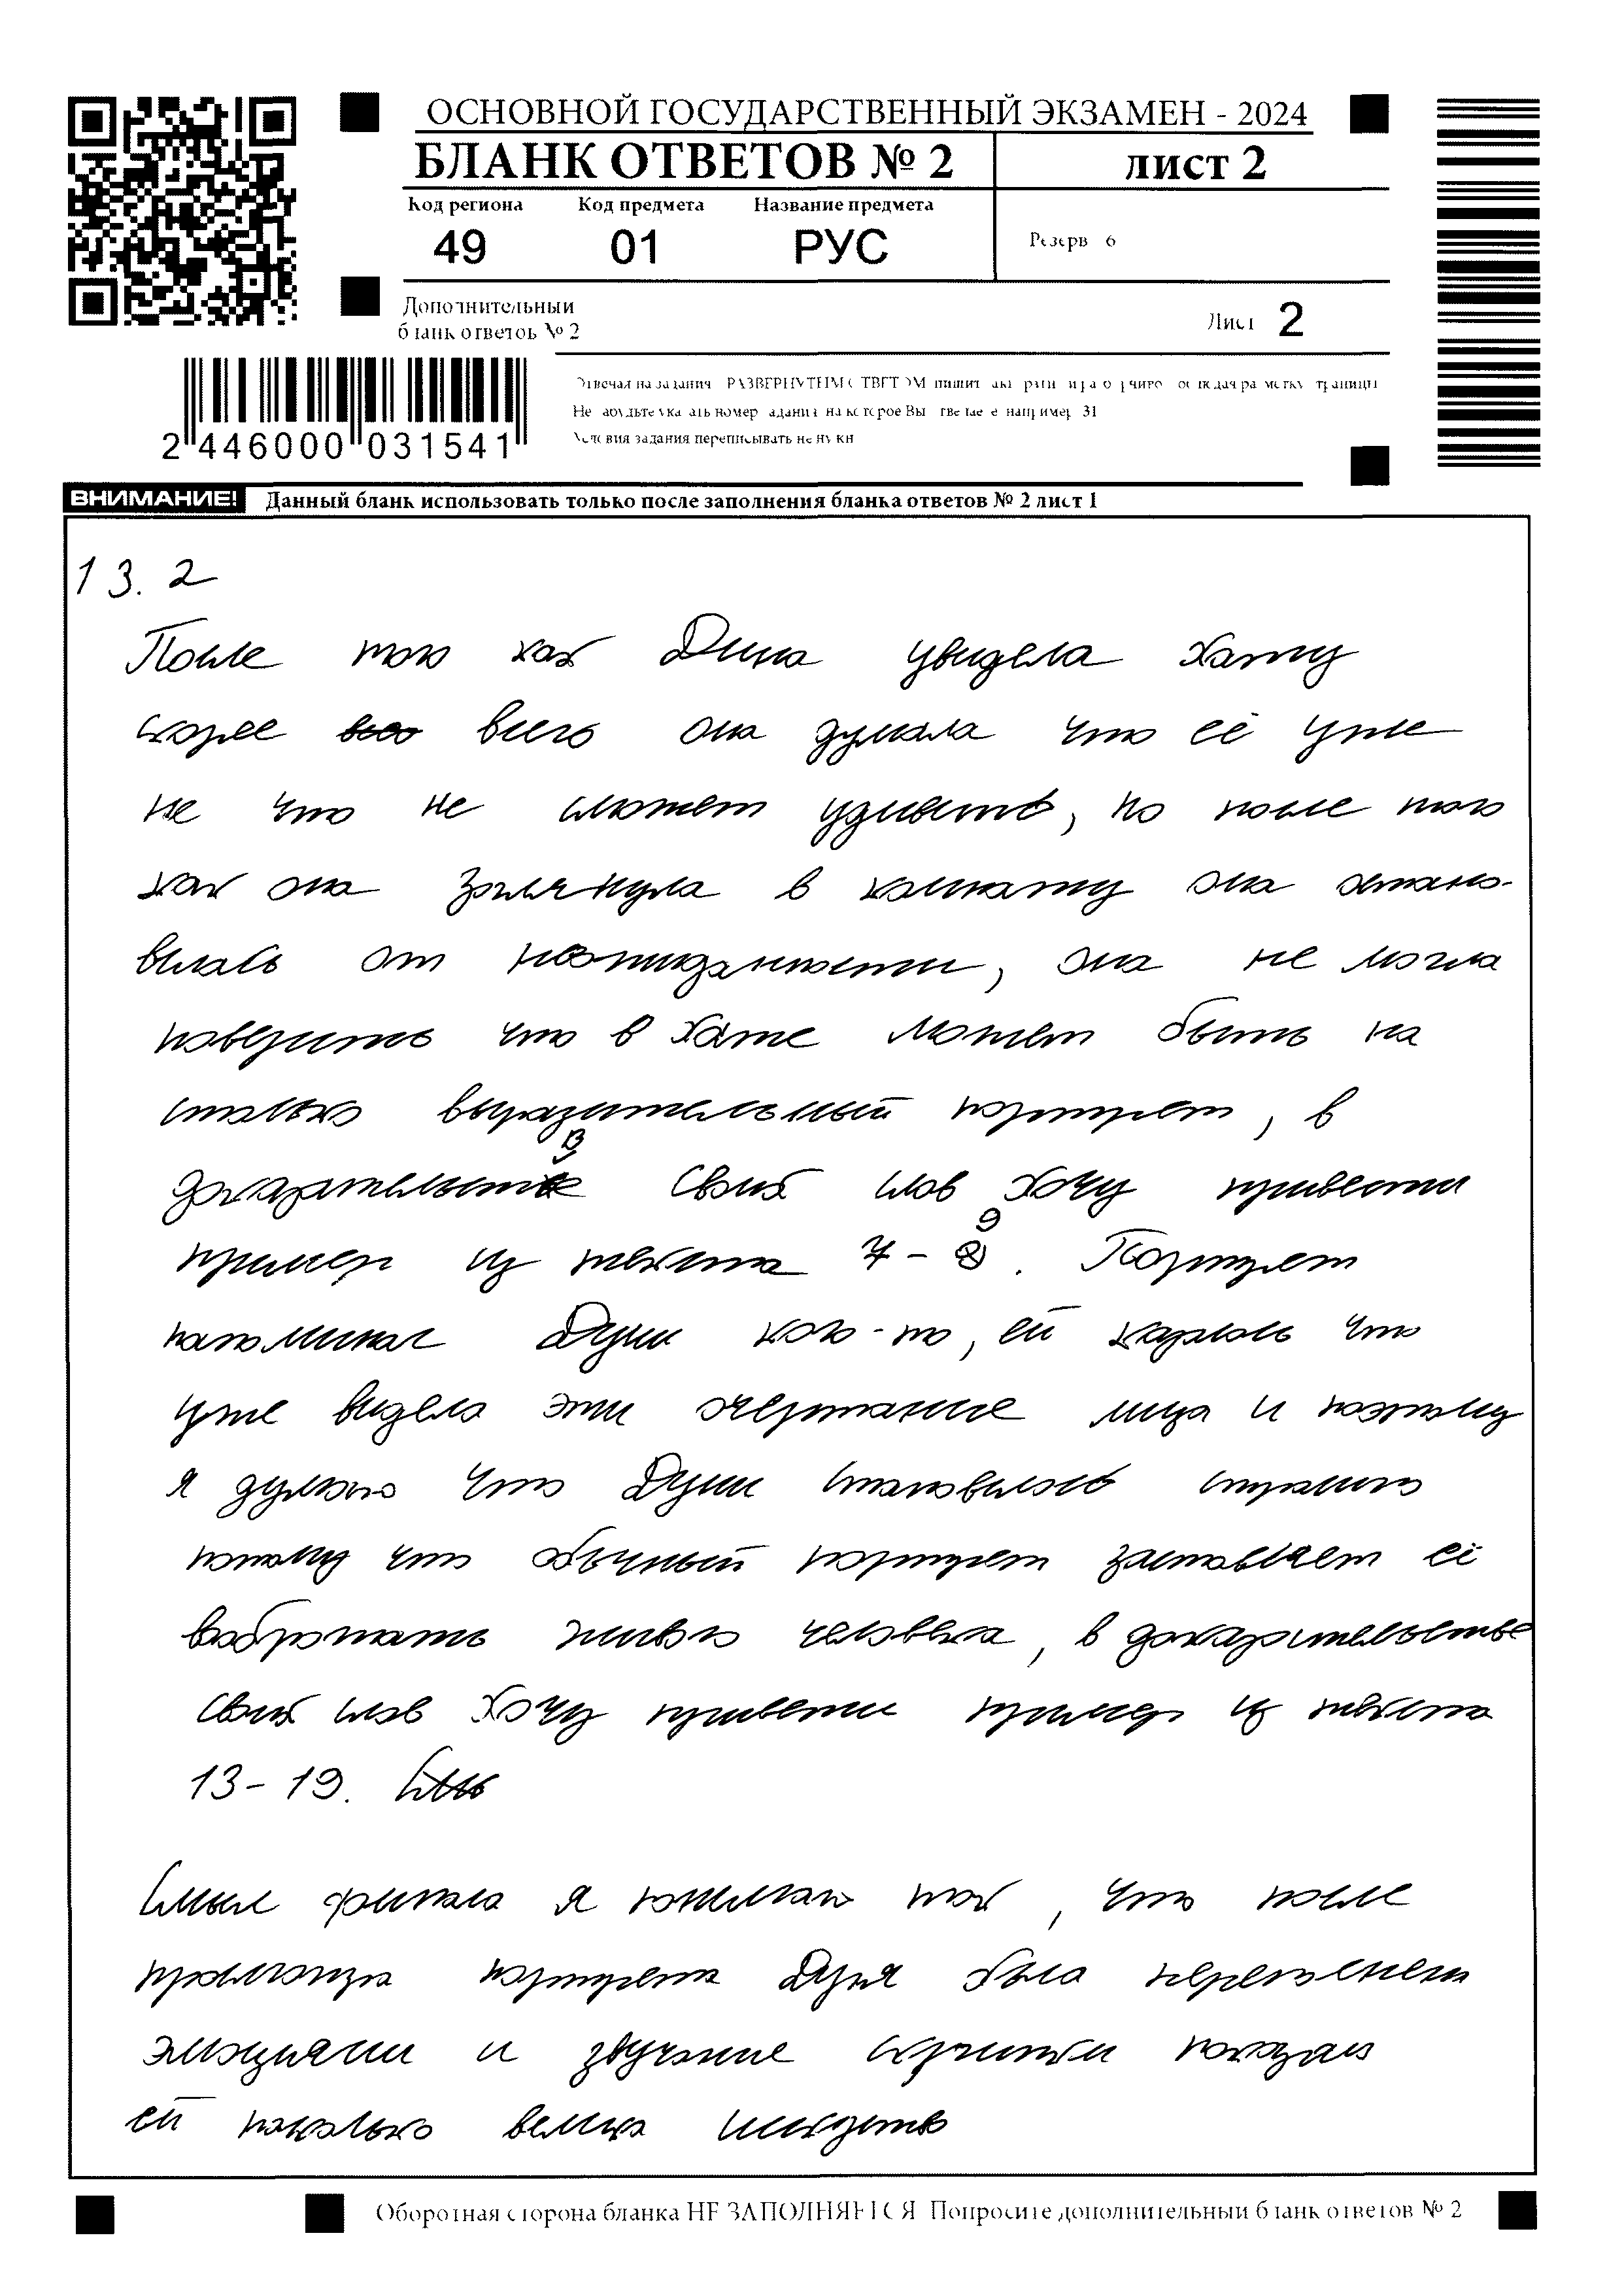 ОСНОВНОЙ ГОСУДАРСТВЕННЫЙ ЭКЗАМЕН - 2024
БЛАНК ОТВЕТОВ № 2
лист 2
Код региона Код предмета Название предмета
49 01 РУС
Резерв 6
Дополнительный
бланк ответов № 2
Лист 2
2 446000 031541
Условия задания переписывать не нужн
ВНИМАНИЕ! Данный бланк использовать только после заполнения бланка ответов № 2 лист 1
13.2
После того как Дина увидела хату
скорее всего она думала что её уже
не что не сможет удивить, но после того
как она заглянула в комнату она остано-
вилась от неожиданности, она не могла
поверить что в хате может быть на
столько выразительный портрет, в
доказательств своих слов хочу привести
пример из текста 7-9. Портрет
напоминал Дуси кого-то, ей казалось что
уже видела эти очертание лица и поэтому
я думаю что Дуси становилось страшно
потому что обычный портрет заставляет её
живого человека, в доказательстве
своих слов хочу привести пример из текста
13-19.
Смысл финала я понимаю так, что после
портрета Дуся была
эмоциями и звучание скрипки показал
ей насколько велико
Оборотная сторона бланка НЕ ЗАПОЛНЯЕТСЯ Попросите дополнительный бланк ответов № 2